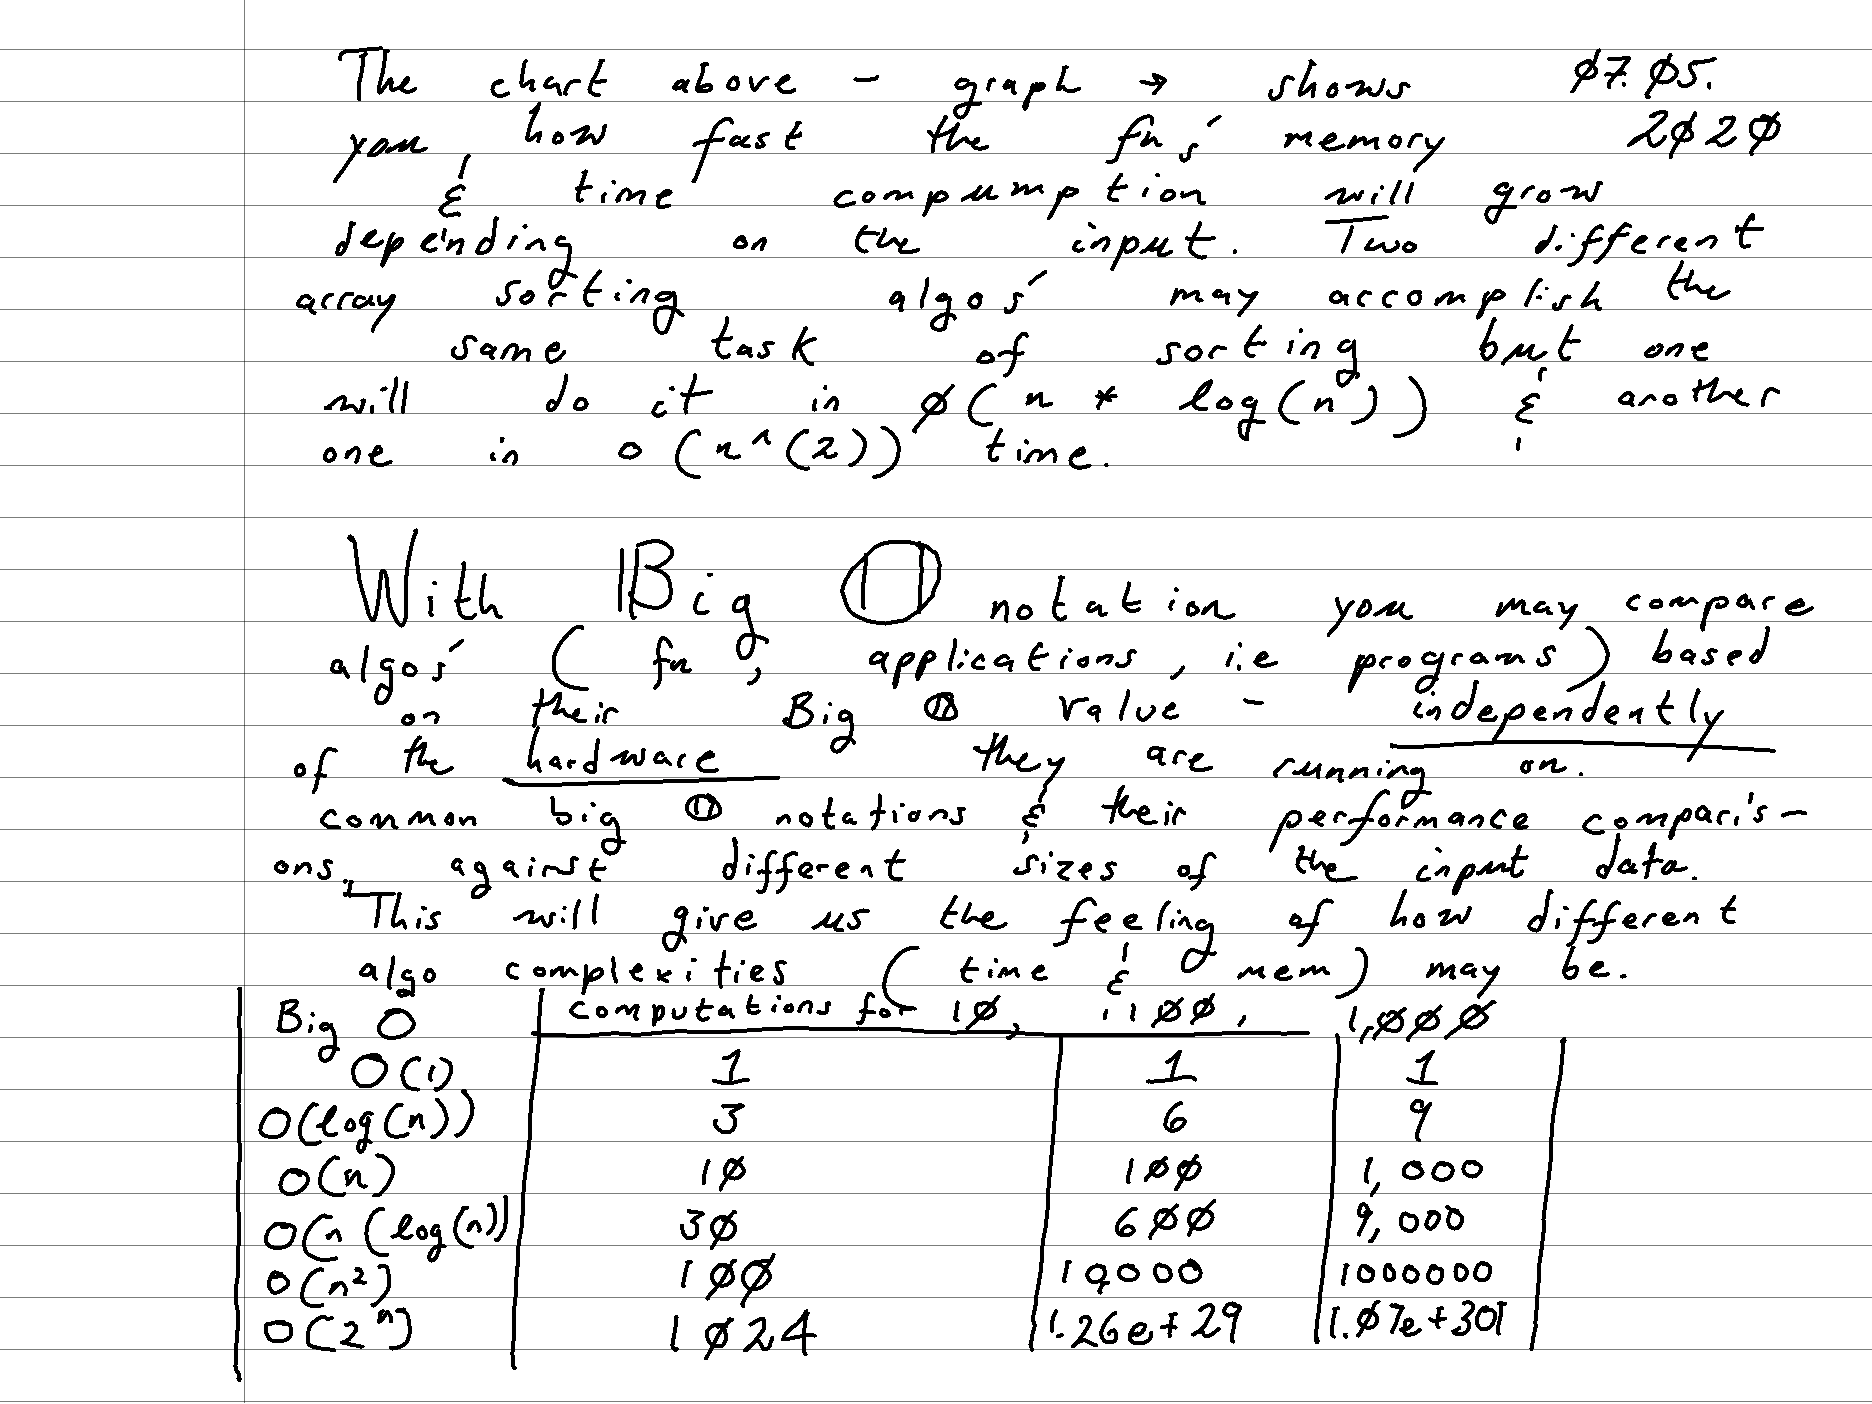 The chart above - graph → shows 07.05.
you how fast the fn's memory 2020
& time compumption will grow
depending on the input. Two different
array sorting algos' may accomplish the
same task of sorting but one
will do it in O(n * log(n)) & another
one in o(n^(2)) time.
With Big O notation you may compare
algos' (fn, applications, i.e programs) based
on their Big O value - independently
of the hardware they are running on.
common big O notations & their performance comparis-
ons, against different sizes of the input data.
This will give us the feeling of how different
algo complexities (time & mem) may be.
Big O computations for 10, 100, 1,000
O(1) 1 1 1
O(log(n)) 3 6 9
O(n) 10 100 1,000
O(n(log(n)) 30 600 9,000
O(n²) 100 10000 1000000
O(2ⁿ) 1024 1.26e+29 1.07e+301